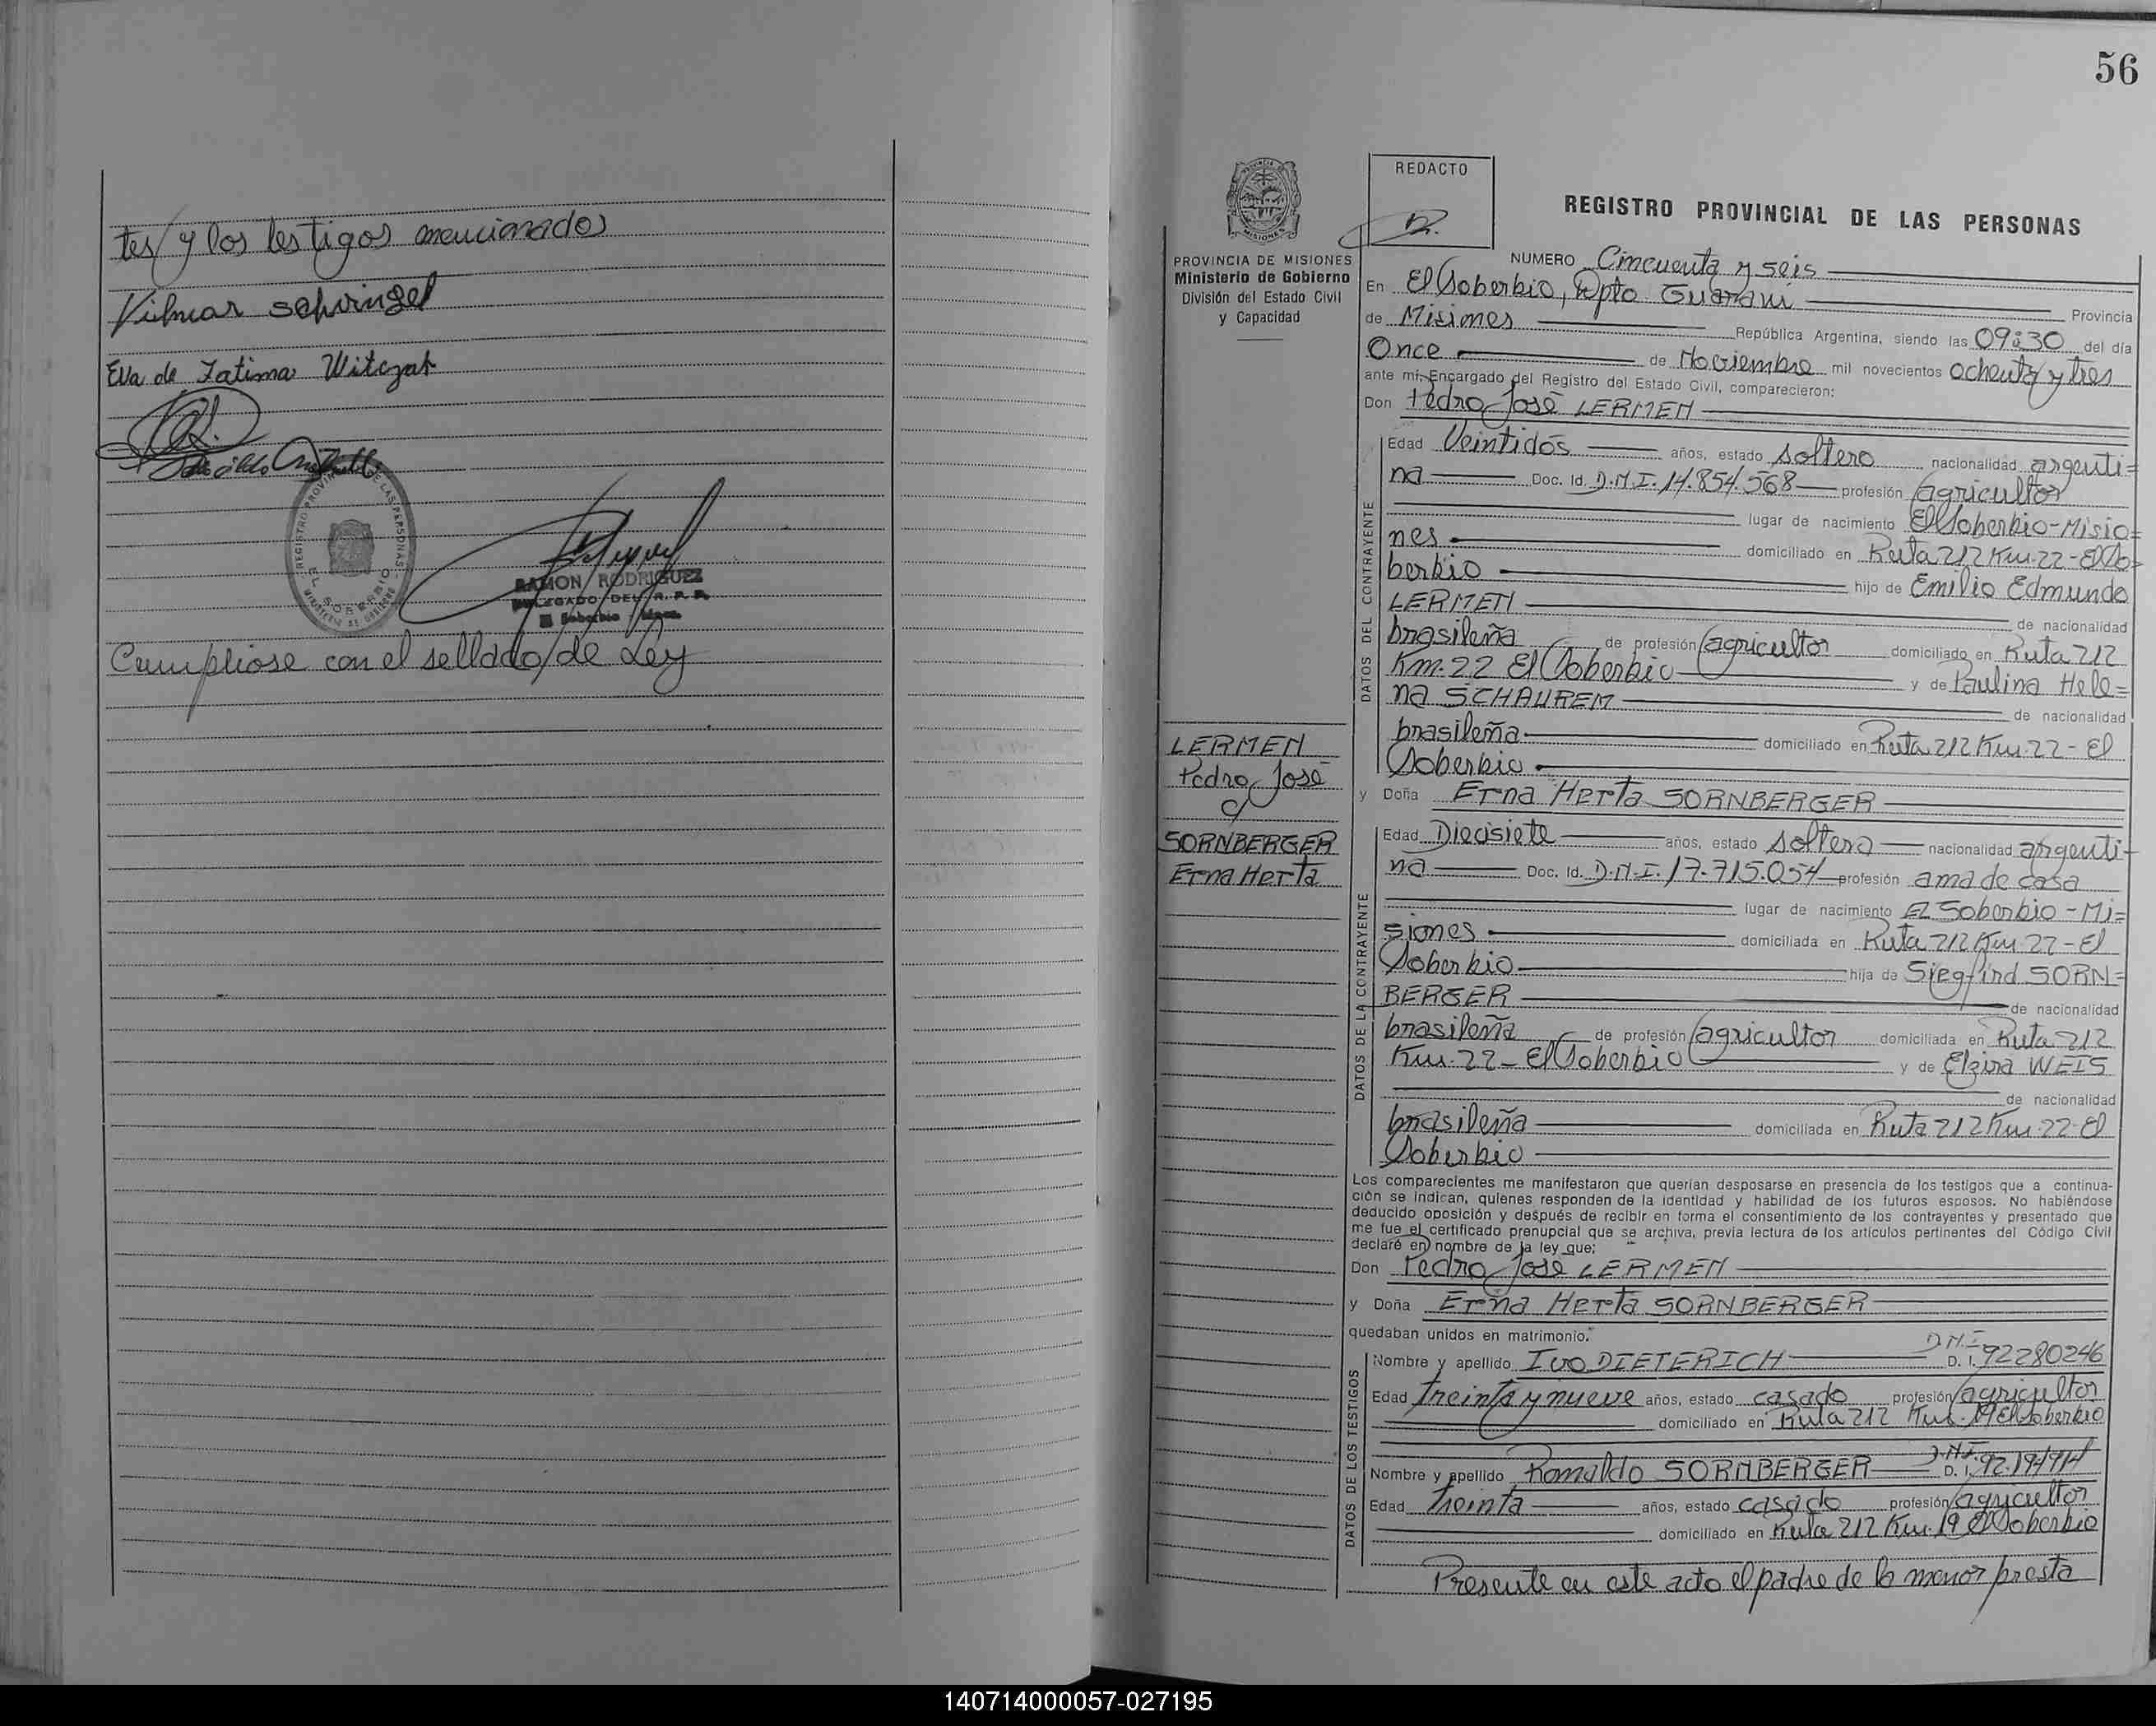 tes y los testigos mencionados
Vilmar Schvingel
Eva de Fatima Witczak
REGISTRO PROVINCIAL DE LAS PERSONAS
EL SOBERBIO
RAMON RODRIGUEZ
DELEGADO DEL R. P. P.
El Soberbio Mnes.
Cumpliose con el sellado de Ley
56
REDACTO
REGISTRO PROVINCIAL DE LAS PERSONAS
PROVINCIA DE MISIONES
Ministerio de Gobierno
División del Estado Civil
y Capacidad
NUMERO Cincuenta y seis
En El Soberbio, Dpto Guaraní Provincia
de Misiones República Argentina, siendo las 09:30 del día
Once de Noviembre mil novecientos ochenta y tres
ante mí, Encargado del Registro del Estado Civil, comparecieron:
Don Pedro José LERMEN
DATOS DEL CONTRAYENTE
Edad Veintidós años, estado soltero nacionalidad argenti=
na Doc. Id. D.N.I. 14.854.568 profesión agricultor
lugar de nacimiento El Soberbio-Misio=
nes domiciliado en Ruta 212 Km. 22-El So=
berbio hijo de Emilio Edmundo
LERMEN de nacionalidad
brasileña de profesión agricultor domiciliado en Ruta 212
Km. 22 El Soberbio y de Paulina Hele=
na SCHAUREM de nacionalidad
brasileña domiciliado en Ruta 212 Km. 22-El
Soberbio
LERMEN
Pedro José
c/
SORNBERGER
Erna Herta
y Doña Erna Herta SORNBERGER
DATOS DE LA CONTRAYENTE
Edad Diecisiete años, estado soltera nacionalidad argenti=
na Doc. Id. D.N.I. 17.715.054 profesión ama de casa
lugar de nacimiento El Soberbio-Mi=
siones domiciliada en Ruta 212 Km 22-El
Soberbio hija de Siegfird SORN=
BERGER de nacionalidad
brasileña de profesión agricultor domiciliada en Ruta 212
Km. 22-El Soberbio y de Elzira WEIS
de nacionalidad
brasileña domiciliada en Ruta 212 Km. 22-El
Soberbio
Los comparecientes me manifestaron que querían desposarse en presencia de los testigos que a continua-
ción se indican, quienes responden de la identidad y habilidad de los futuros esposos. No habiéndose
deducido oposición y después de recibir en forma el consentimiento de los contrayentes y presentado que
me fue el certificado prenupcial que se archiva, previa lectura de los artículos pertinentes del Código Civil
declaré en nombre de la ley que:
Don Pedro José LERMEN
y Doña Erna Herta SORNBERGER
quedaban unidos en matrimonio.
DATOS DE LOS TESTIGOS
Nombre y apellido Ivo DIETERICH D.N.I. D. I. 92280246
Edad Treinta y nueve años, estado casado profesión agricultor
domiciliado en Ruta 212 Km. 19 El Soberbio
Nombre y apellido Romaldo SORNBERGER D.N.I. D. I.
Edad Treinta años, estado casado profesión agricultor
domiciliado en Ruta 212 Km. 19 El Soberbio
Presente en este acto el padre de la menor presta
140714000057-027195